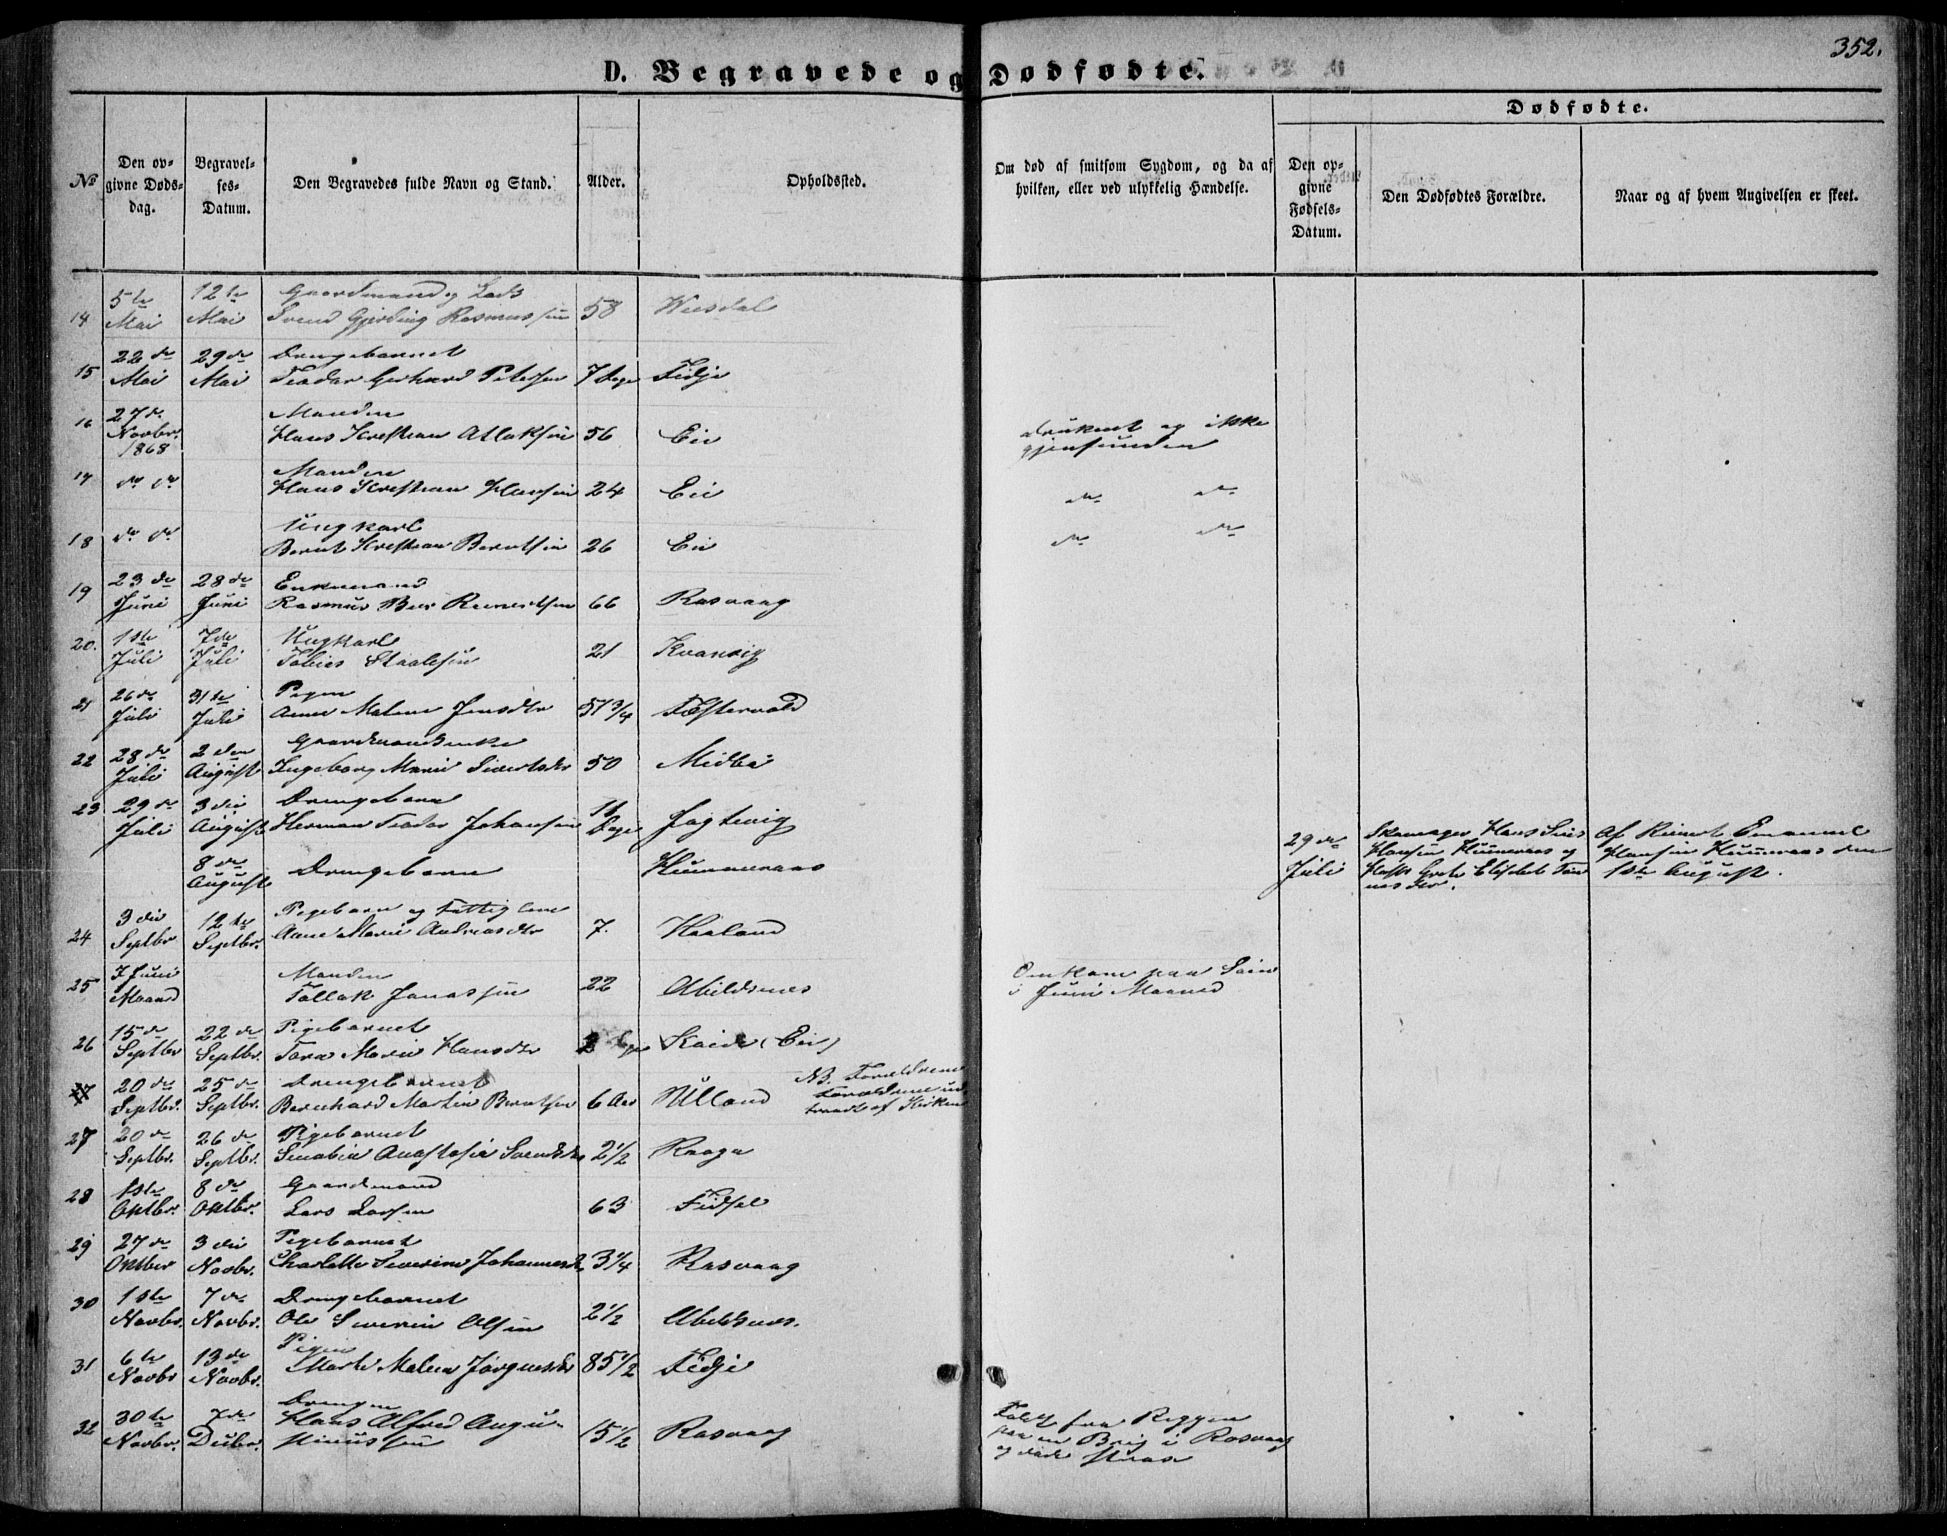 352.
D. Begravede og Dødfødte.
Dødfødte.
No
Den opgivne Dødsdag.
Begravelses-Datum.
Den Begravedes fulde Navn og Stand.
Alder.
Opholdssted.
Om død af smitsom Sygdom, og da af hvilken, eller ved ulykkelig Hændelse.
Den opgivne Fødsels-Datum.
Den Dødfødtes Forældre.
Naar og af hvem Angivelsen er skeet.
14 5te Mai 12te Mai Gaardmand og Lods
Svend Gjerding Rasmussen 58
15 22de Mai 29de Mai Drengebarnet
Teodor Gerhard Petersen 7 Dage Fidje
16 27de Novbr. 1868 Manden
Hans Kristian Atlaksen 56 Eie druknet og ikke
gjenfunden
17 do do Manden
Hans Kristian Hansen 24 Eie do do
18 do do Ungkarl
Bernt Kristian Berntsen 26 Eie do do
19 23de Juni 28de Juni Enkemand
Rasmus Beer Reinertsen 66 Rasvaag
20. 1ste Juli 7de Juli Ungkarl
Tobias Staalesen 21 Kvanvig
21 26de Juli 31te Juli Pigen
Anne Malene Jensdtr 51 3/4
22 28de Juli 2den August Gaardmandsenke
Ingeborg Marie Sivertsdtr 50 Midbø
23 29de Juli 3die August Drengebarn
Herman Teodor Johansen 11 Dage Jagtevig
8de August Drengebarn Hunneraas
29de Juli
Skomager Hans Sivert
Hansen Hunneraas og
Hustr Grete Elisabet Tønnesdtr.
Af Reinert Emanuel
Hansen Hunneraas den
1ste August.
24 3die Septbr 12te Septbr. Pigebarn og Fattiglem
Anne Marie Andreasdtr 7. Haaland
25 I Juni Maaned Manden
Tollak Jonassen 22 Abildsnes Omkom paa Søen
i Juni Maaned
26 15de Septbr 22de Septbr. Pigebarnet
Tora Marie Hansdtr 2 Dage (Eie)
27 20de Septbr. 25de Septbr. Drengebarnet
Bernhard Martin Berntsen 6 Aar Ulland NB. Forældrene
Forældrene ud-
traadt af Kirken
27 20de Septbr. 26de Septbr. Pigebarnet
Anastasie Svendsdtr 2 1/2 Raage
28 1ste Oktbr. 8de Oktbr. Gaardmand
Lars Larsen 63 Fidsel
29 27de Oktber 3die Novbr. Pigebarnet
Charlotte Severine Johannesdtr 3 1/4 Rasvaag
30 1ste Novbr. 7de Novbr. Drengebarnet
Ole Severin Olsen 2 1/2 Abildsnes.
31 6te Novbr 13de Novbr. Pigen
Marte Malene Jørgensdtr 85 1/2 Fidje
32 30te Novbr. 7de Decbr. Drengen
Hans Alfred Augu-
stinussen 15 1/2 Rasvaag Faldt fra Riggen
paa en Brig i Rasvaag
og døde strax